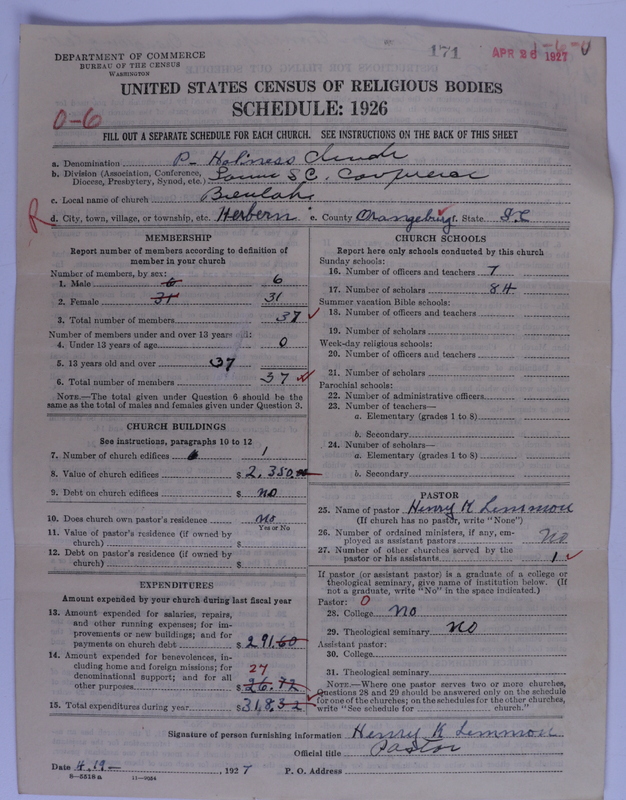 DEPARTMENT OF COMMERCE
BUREAU OF THE CENSUS
WASHINGTON
171
APR 26 1927
1-6-0
UNITED STATES CENSUS OF RELIGIOUS BODIES
SCHEDULE: 1926
0-6
FILL OUT A SEPARATE SCHEDULE FOR EACH CHURCH. SEE INSTRUCTIONS ON THE BACK OF THIS SHEET
a. Denomination P- Holiness Church
b. Division (Association, Conference, Diocese, Presbytery, Synod, etc.) S C.
c. Local name of church Beulah
R d. City, town, village, or township, etc. Herbern e. County Orangeburg f. State S.C
MEMBERSHIP
Report number of members according to definition of
member in your church
Number of members, by sex:
1. Male 6 6
2. Female 31 31
3. Total number of members 37
Number of members under and over 13 years
4. Under 13 years of age 0
5. 13 years old and over 37
6. Total number of members 37
NOTE.—The total given under Question 6 should be
same as the total of males and females given under Question 3.
CHURCH BUILDINGS
See instructions, paragraphs 10 to 12
7. Number of church edifices 1
8. Value of church edifices $ 2,350.00
9. Debt on church edifices $ no
10. Does church own pastor's residence no
Yes or No
11. Value of pastor's residence (if owned by
church) $
12. Debt on pastor's residence (if owned by
church) $
EXPENDITURES
Amount expended by your church during last fiscal year
13. Amount expended for salaries, repairs,
and other running expenses; for im-
provements or new buildings; and for
payments on church debt $ 291.60
14. Amount expended for benevolences, in-
cluding home and foreign missions; for
denominational support; and for all
other purposes $ 26.72
27
15. Total expenditures during year $ 318.32
CHURCH SCHOOLS
Report here only schools conducted by this church
Sunday schools:
16. Number of officers and teachers 7
17. Number of scholars 84
Summer vacation Bible schools:
18. Number of officers and teachers
19. Number of scholars
Week-day religious schools:
20. Number of officers and teachers
21. Number of scholars
Parochial schools:
22. Number of administrative officers
23. Number of teachers—
a. Elementary (grades 1 to 8)
b. Secondary
24. Number of scholars—
a. Elementary (grades 1 to 8)
b. Secondary
PASTOR
25. Name of pastor Henry K Lemmon
(If church has no pastor, write "None")
26. Number of ordained ministers, if any, em-
ployed as assistant pastors No
27. Number of other churches served by the
pastor or his assistants 1
If pastor (or assistant pastor) is a graduate of a college or
theological seminary, give name of institution below. (If
not a graduate, write "No" in the space indicated.)
Pastor: 0
28. College No
29. Theological seminary No
Assistant pastor:
30. College
31. Theological seminary
NOTE.—Where one pastor serves two or more churches,
Questions 28 and 29 should be answered only on the schedule
for one of the churches; on the schedules for the other churches,
write "See schedule for church."
Signature of person furnishing information Henry K Lemmon
Official title Pastor
Date 4.19— , 1927 P. O. Address
8—5518a 11—9554